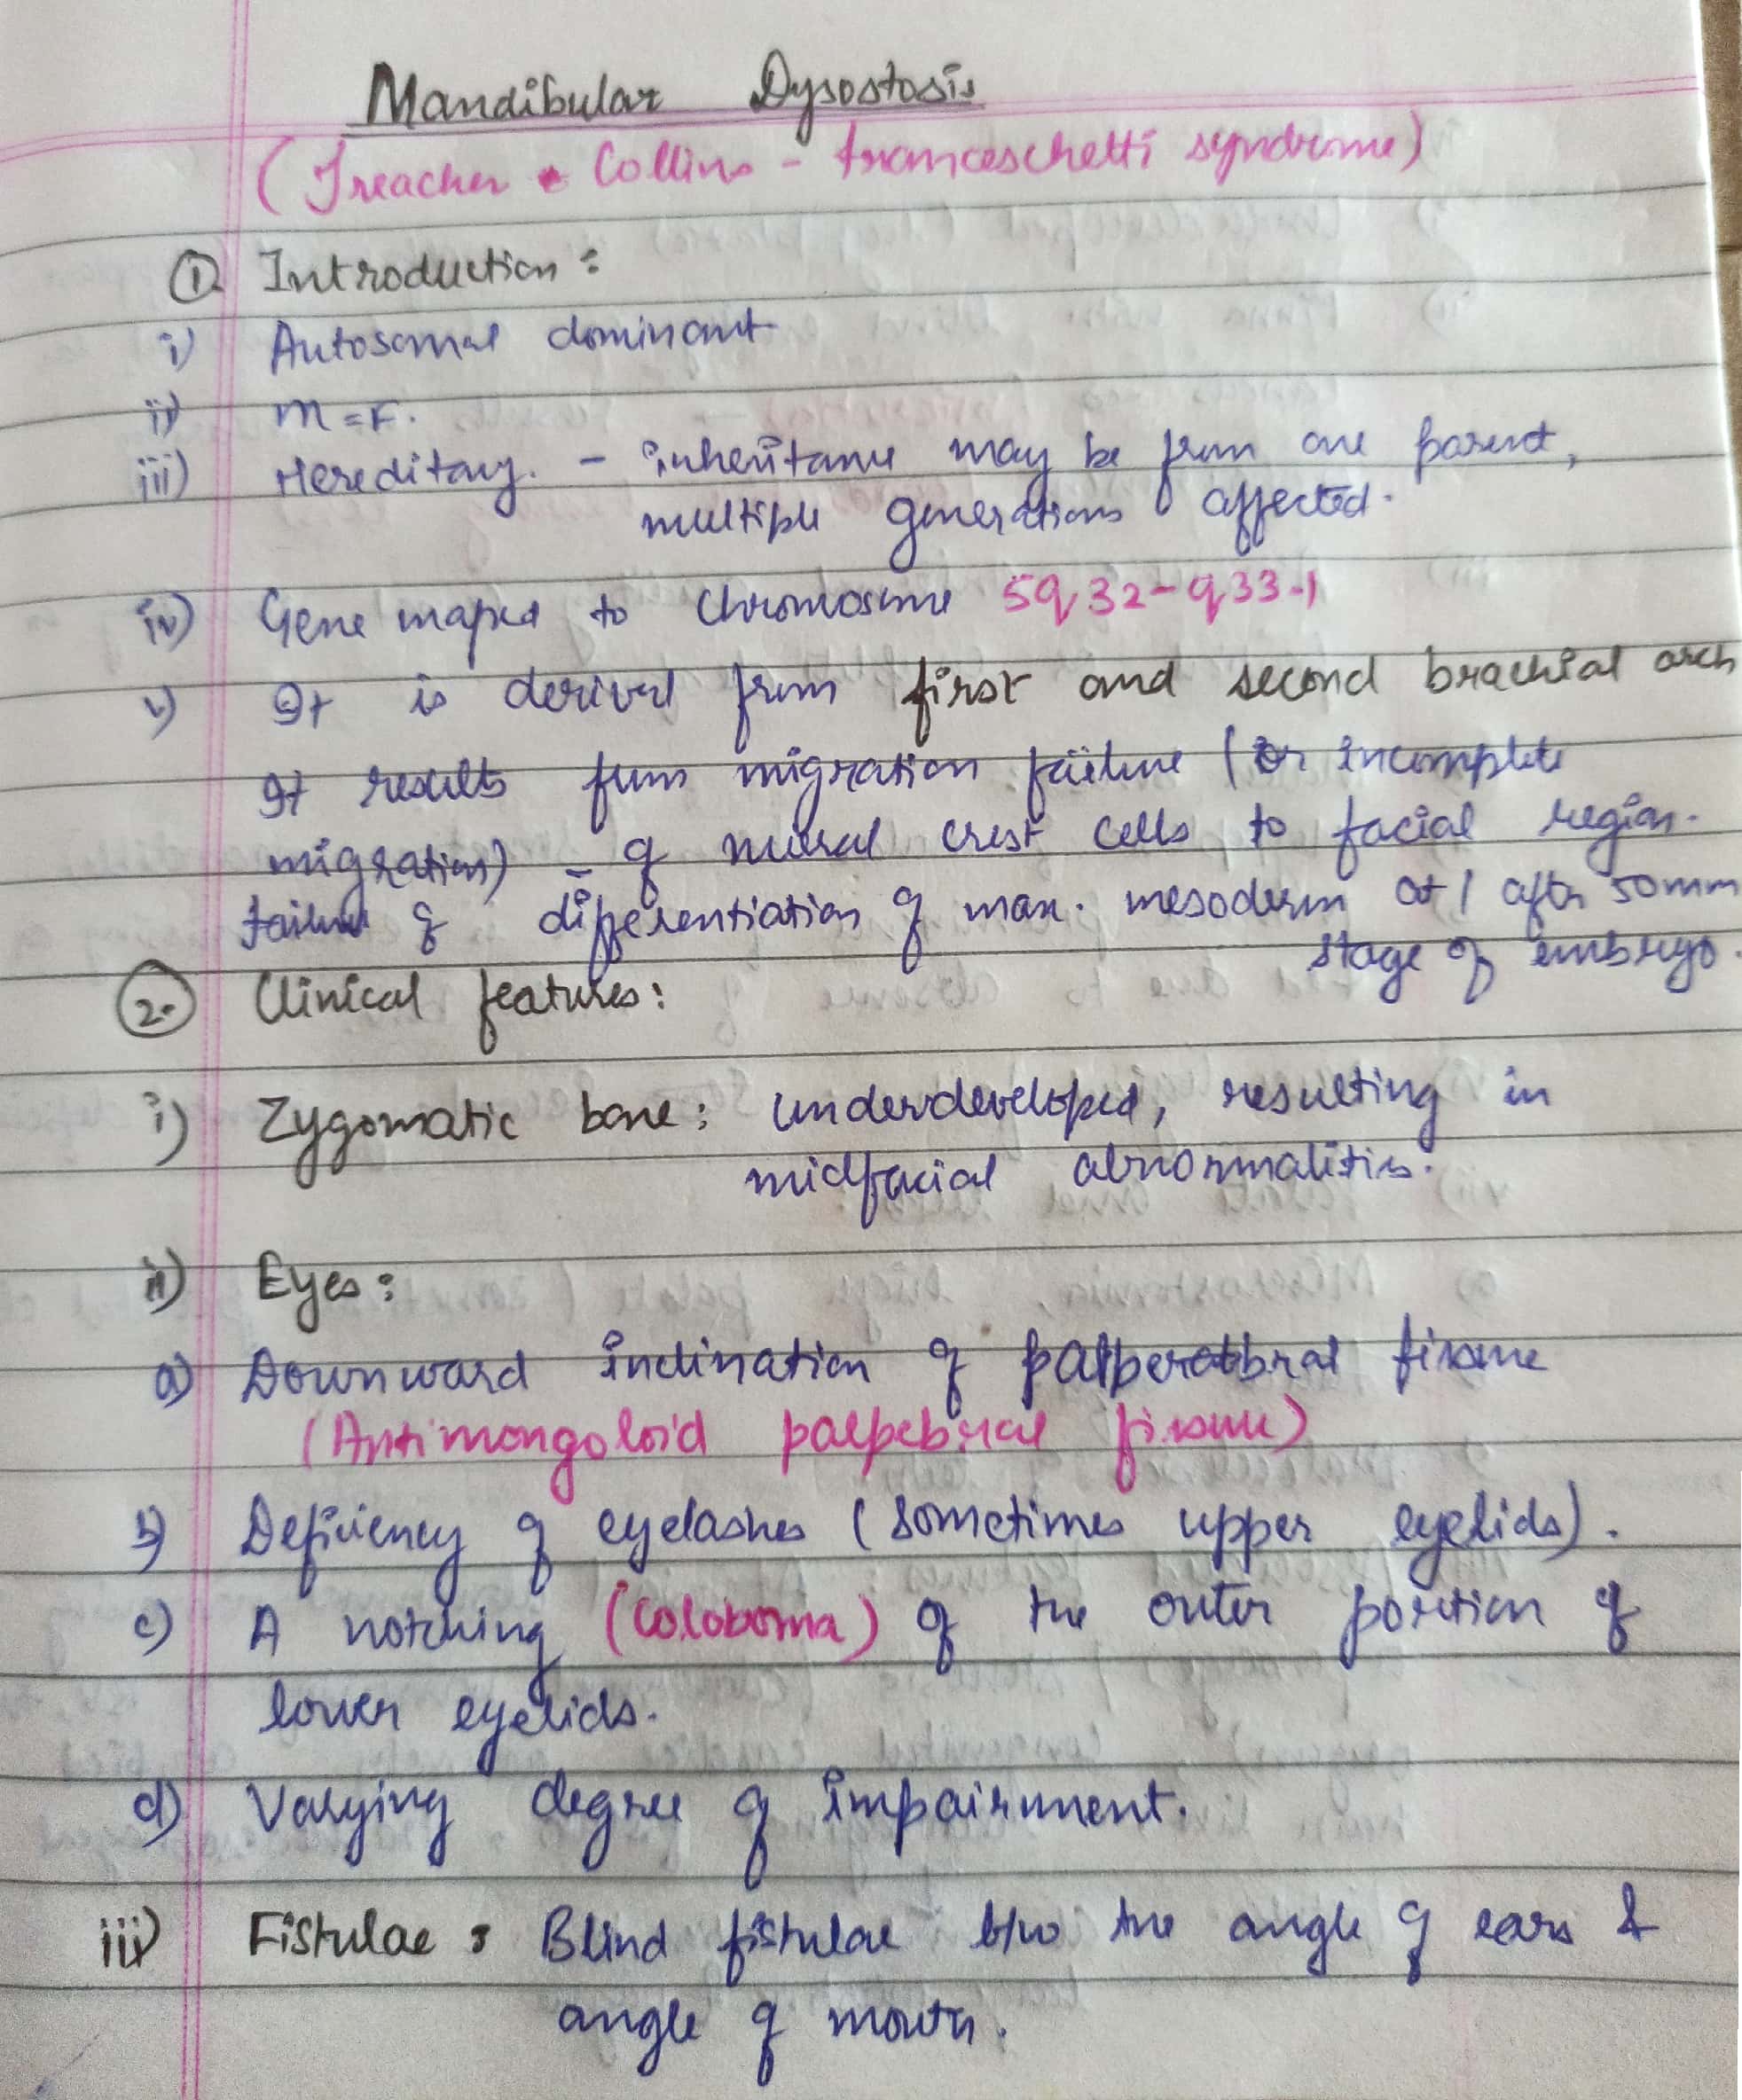 Mandibular Dysostosis
(Treacher Collins - franceschetti syndrome)
① Introduction :
i) Autosomal dominant
ii) M = F.
iii) Hereditary. - inheritance may be from one parent,
multiple generations affected.
iv) Gene maped to chromosome 5q32-q33.1
v) It is derived from first and second brachial arch
It results from migration failure (or incomplete
migration) - of neural crest cells to facial region.
failure of differentiation of max. mesoderm at / after 50mm
stage of embryo.
2. Clinical features :
i) Zygomatic bone : underdeveloped, resulting in
midfacial abnormalities.
ii) Eyes :
a) Downward inclination of fissure
(Antimongoloid palpebral fissure)
b) Deficiency of eyelashes (sometimes upper eyelids).
c) A notching (coloboma) of the outer portion of
lower eyelids.
d) Varying degree of impairment.
iii) Fistulae : Blind fistulae b/w the angle of ears &
angle of mouth.